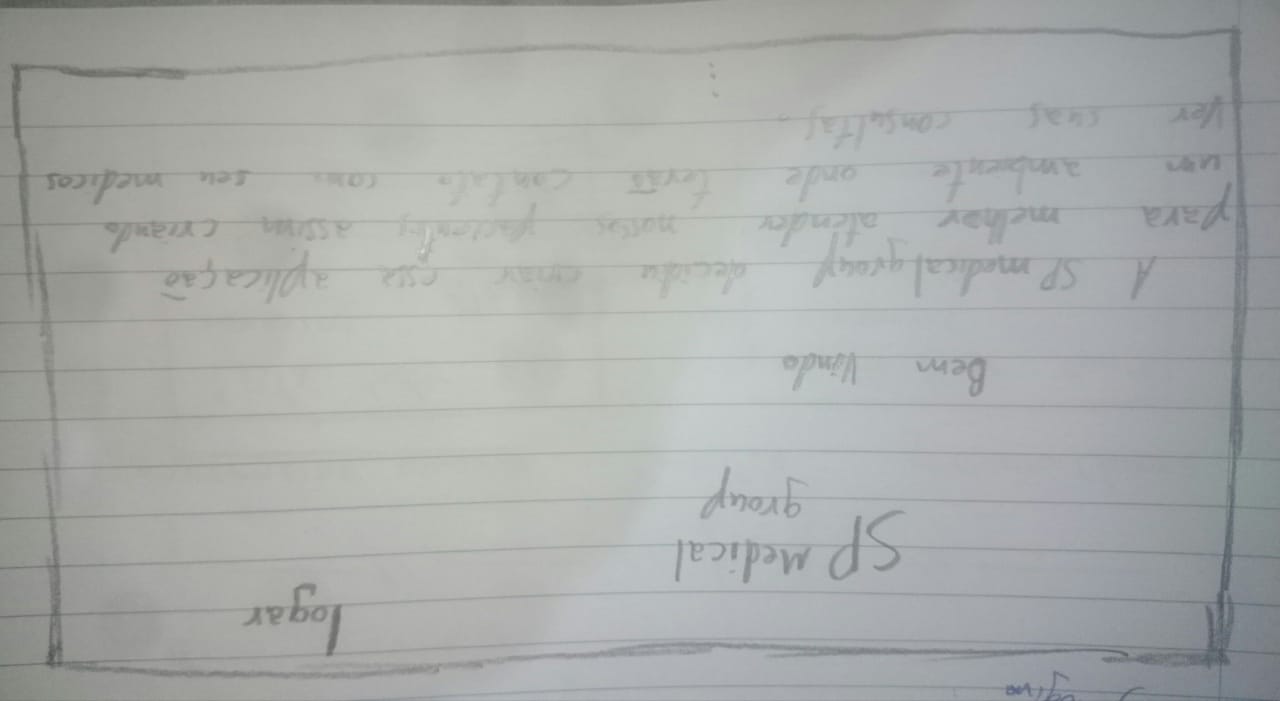 logar
SP Medical
group
Bem Vindo
A SP medical group decidiu criar essa aplicação
para melhor atender nossos pacientes assim criando
um ambiente onde terão contato com seu medicos
Ver suas consultas.